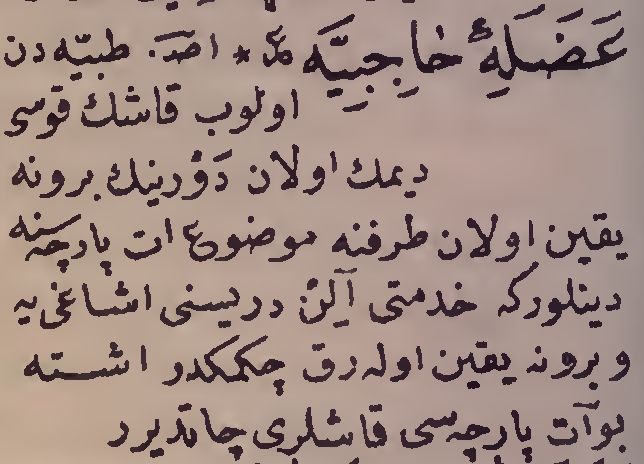 عَضَلَهِٔ حَاجِبِيَّه * اصد. طبيّه دن
اولوب قاشك قوسى
ديمك اولان دَوْرينك برونه
يقين اولان طرفنه موضوع ات پارچه سنه
دينلور كه خدمتى آلِنْ دريسنى اشاغى يه
و برونه يقين اوله رق چكمكدر اشته
بوآت پارچه سى قاشلرى چاتديرر